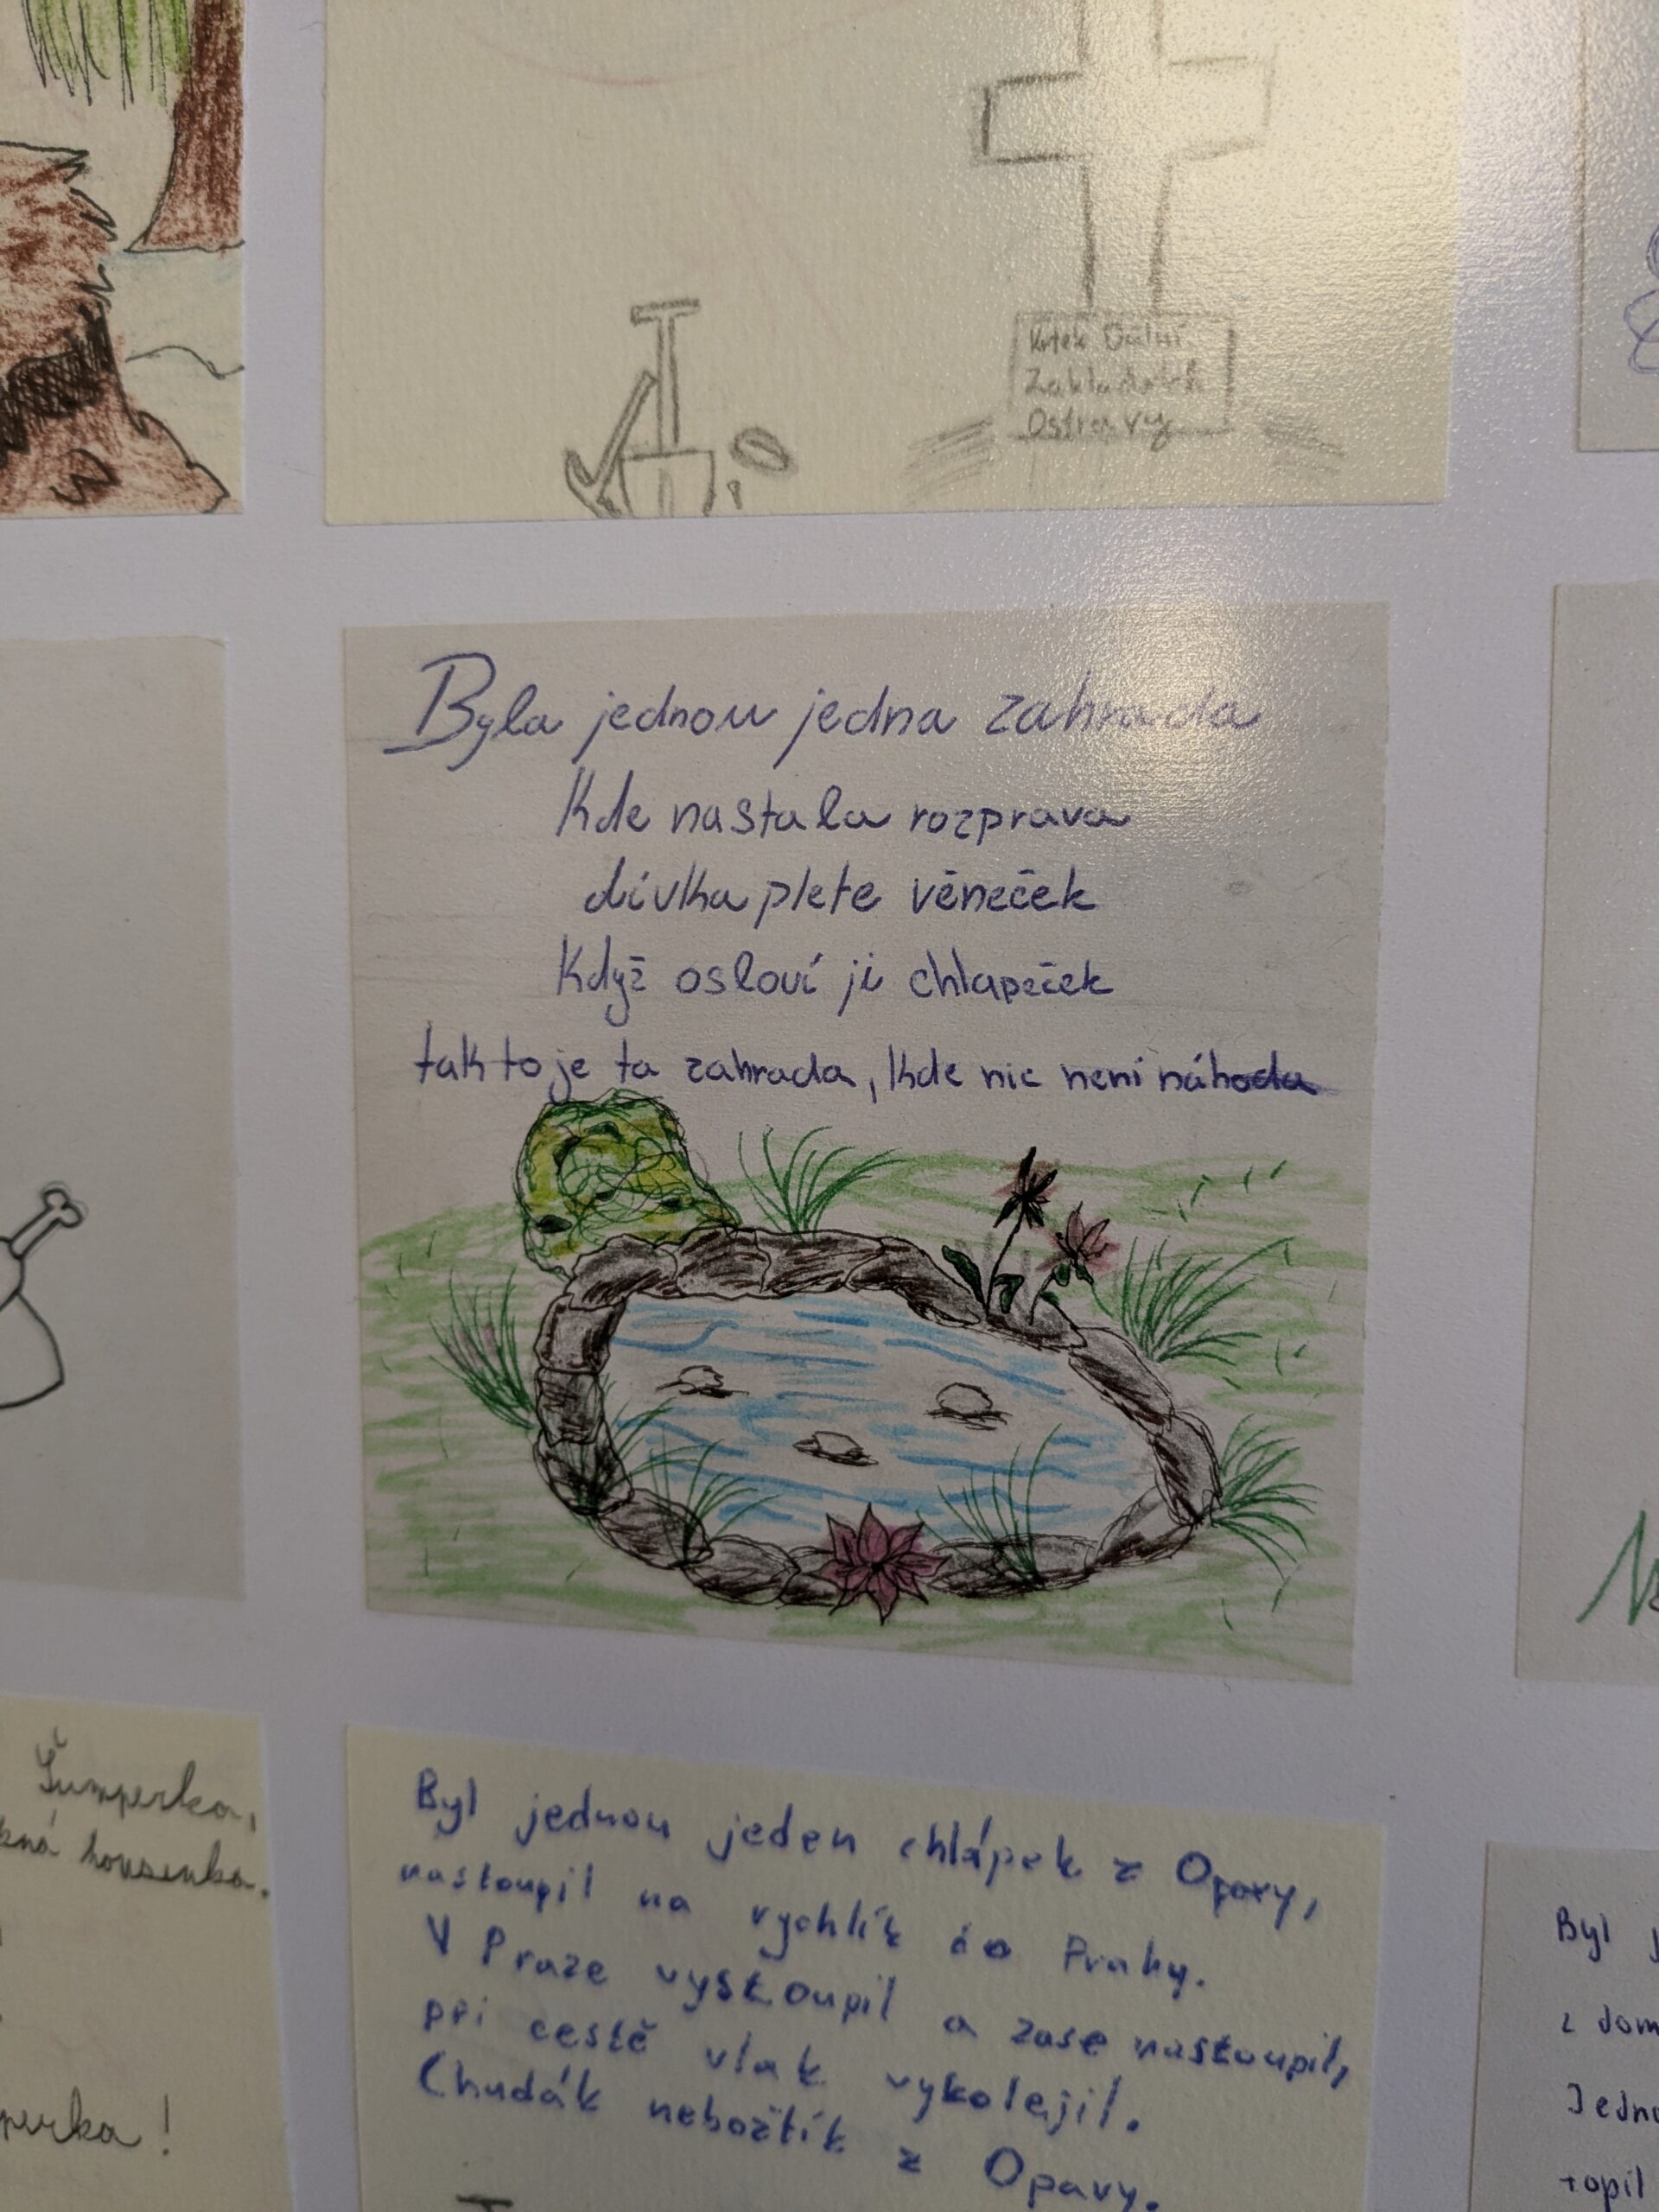 Krtek Důlní
Zakladatel
Ostravy
Byla jednou jedna zahrada
Kde nastala rozprava
dívka plete věneček
Když osloví ji chlapeček
tak to je ta zahrada, kde nic není náhoda
Šumperka,
housenka.
Byl jednou jeden chlápek z Opavy,
nastoupil na rychlík do Prahy.
V Praze vystoupil a zase nastoupil,
při cestě vlak vykolejil.
Chudák nebožtík z Opavy.
Byl
z
Jedno
topil